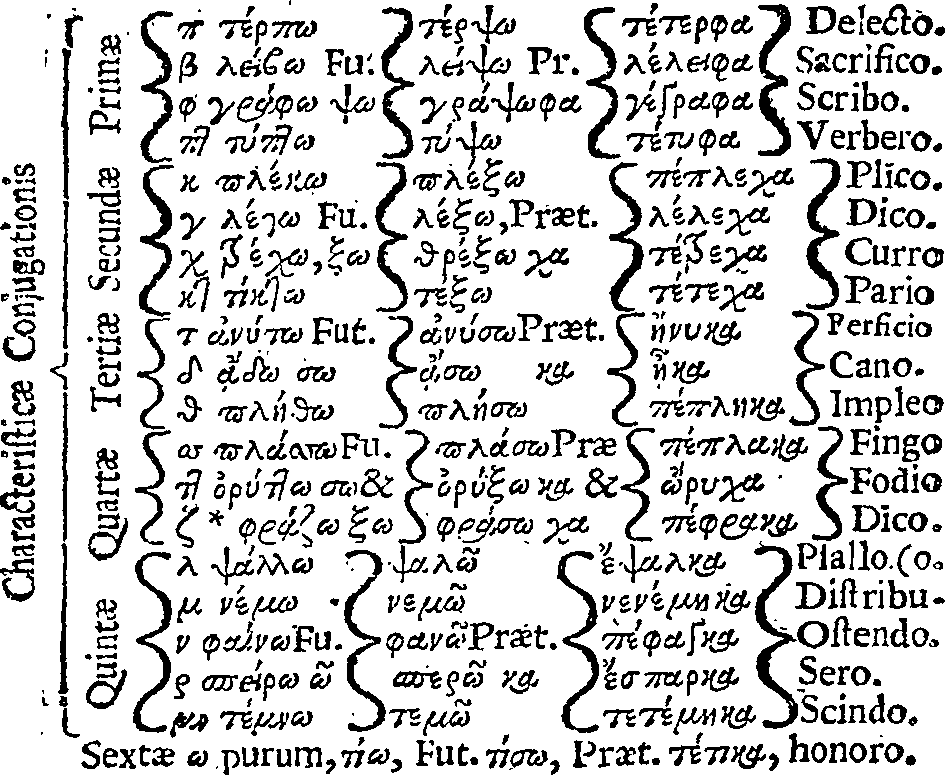 Characteristicæ Conjugationis
Primæ
π τέρπω τέρψω τέτερφα Delecto.
β λείβω Fu. λείψω Pr. λέλειφα Sacrifico.
φ γράφω ψω γράψω φα γέγραφα Scribo.
πτ τύπτω τύψω τέτυφα Verbero.
Secundæ
κ πλέκω πλέξω πέπλεχα Plico.
γ λέγω Fu. λέξω, Præt. λέλεχα Dico.
χ τρέχω, ξω θρέξω χα τέτρεχα Curro
κτ τίκτω τέξω τέτεχα Pario
Tertiæ
τ ἀνύτω Fut. ἀνύσω Præt. ἤνυκα Perficio
δ ᾄδω σω ᾄσω κα ᾖκα Cano.
θ πλήθω πλήσω πέπληκα Impleo
Quartæ
σσ πλάσσω Fu. πλάσω Præ πέπλακα Fingo
ττ ὀρύττω σω & ὀρύξω κα & ὤρυχα Fodio
ζ * φράζω ξω φράσω χα πέφρακα Dico.
Quintæ
λ ψάλλω ψαλῶ ἔψαλκα Psallo. (o.
μ νέμω νεμῶ νενέμηκα Distribu-
ν φαίνω Fu. φανῶ Præt. πέφαγκα Ostendo.
ρ σπείρω ῶ σπερῶ κα ἔσπαρκα Sero.
μν τέμνω τεμῶ τετέμηκα Scindo.
Sextæ ω purum, τίω, Fut. τίσω, Præt. τέτικα, honoro.